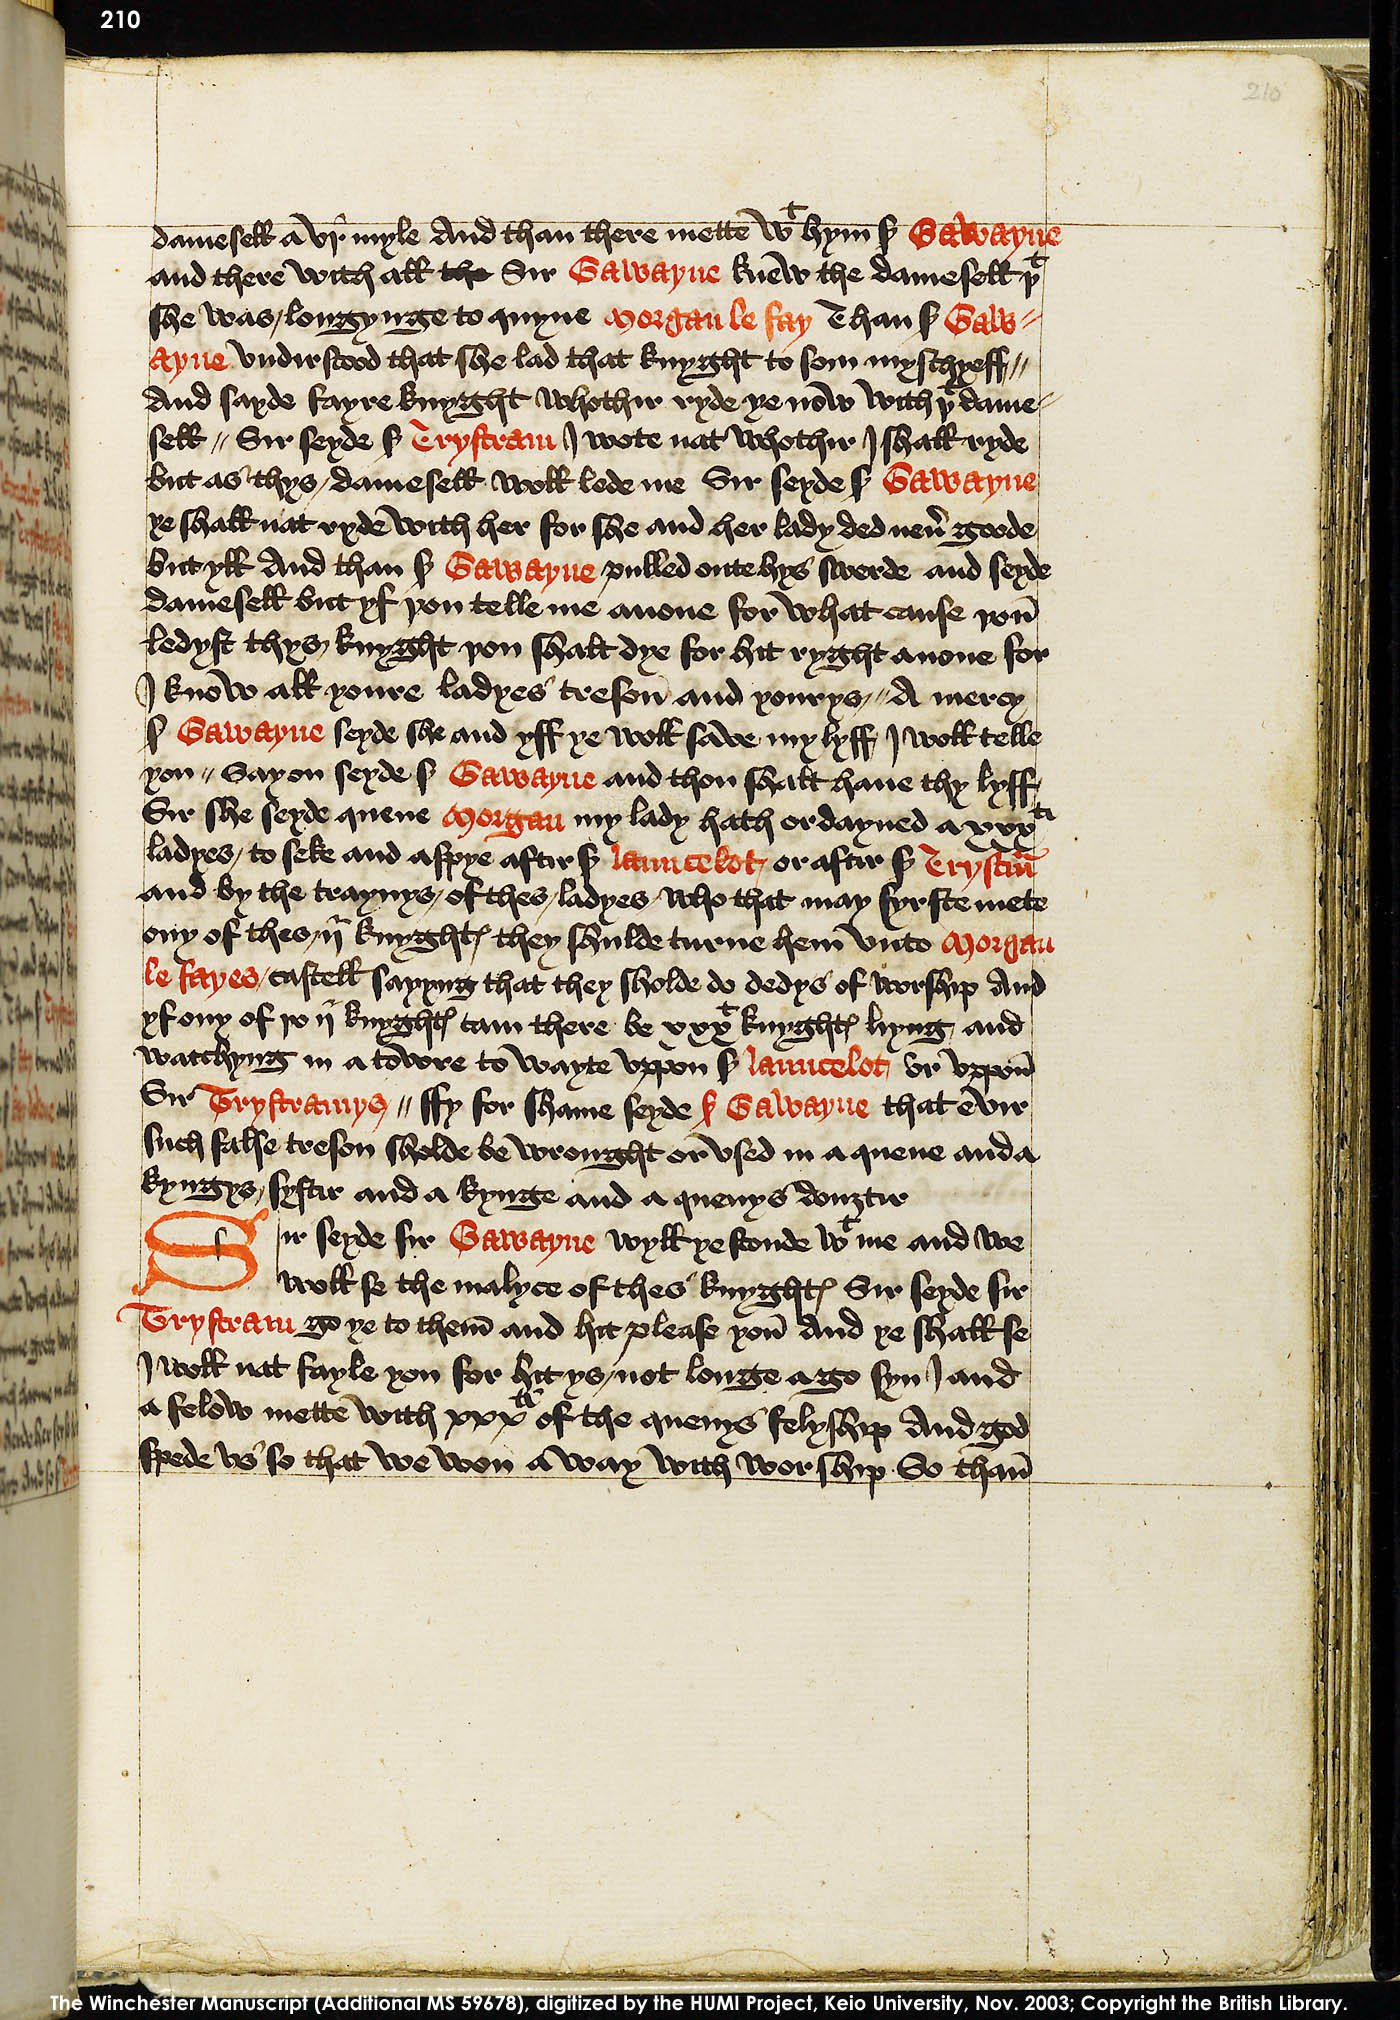 210
210
damesell a vj myle And than there mette wt hym sr Gawayne
and there with all the Sir Gawayne knew the damesell þt
she was longynge to quyne Morgan le fay Than sr Gaw-
ayne vndirstood that she lad that knyght to som myschyeff //
And sayde fayre knyght whothir ryde ye now with þt dame-
sell // Sir seyde sr Trystram I wote nat whothir I shall ryde
but as thys damesell woll lede me Sir seyde sr Gawayne
ye shall nat ryde with her for she and her lady ded neu̾ goode
but yll And than sr Gawayne pulled oute hys swerde and seyde
damesell but yf þou telle me anone for what cause þou
ledyst thys knyght þou shalt dye for hit ryght anone for
I know all youre ladyes treson and yourys // A mercy
sr Gawayne seyde she and yff ye woll save my lyff I woll telle
you // Say on seyde sr Gawayne and thou shalt haue thy lyff
Sir she seyde quene Morgan my lady hath ordayned a xxxti
ladyes to seke and aspye aftir sr launcelot or aftir sr Trystrm̄
and by the traynys of thes ladyes who that may fyrste mete
ony of thes ij knyghtes they shulde turne hem vnto Morgan
le fayes castell sayyng that they sholde do dedys of worship And
yf ony of þo ij knyghtes cam there be xxxt knyghtes liyng and
watchyng in a towre to wayte vppon sr launcelot or vppon
Sir Trystramys // ffy for shame seyde sr Gawayne that evir
such false treson sholde be wrought or vsed in a quene and a
kyngys syster and a kynge and a quenys douȝtir
Sir seyde sir Gawayne wyll ye stonde wt me and we
woll se the malyce of thes knyghtes Sir seyde sir
Trystram go ye to them and hit please you And ye shall se
I woll nat fayle you for hit ys not longe ago syn I and
a felow mette with xxxti of the quenys felyship And god
spede vs so that we won away with worship So than
The Winchester Manuscript (Additional MS 59678), digitized by the HUMI Project, Keio University, Nov. 2003; Copyright the British Library.